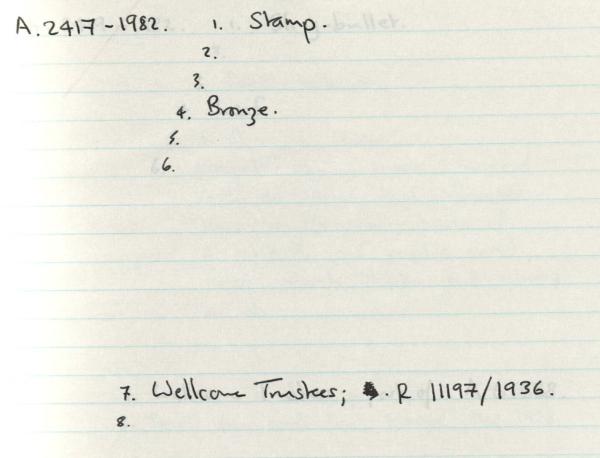 A.2417-1982. 1. Stamp.
2.
3.
4. Bronze.
5.
6.
7. Wellcome Trustees; . R 11197/1936.
8.